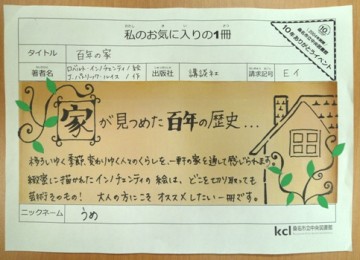 私のお気に入りの1冊
10周年ありがとうイベント
タイトル 百年の家
著者名 ロベルト・インノチェンティ/絵
J.パトリック・ルイス/作
出版社 講談社
請求記号 Eイ
家が見つめた百年の歴史...
移ろいゆく季節、変わりゆく人々のくらしを、一軒の家を通して感じられます。
緻密に描かれたインノチェンティの絵は、どこをきり取っても
芸術そのもの! 大人の方にこそオススメしたい一冊です。
ニックネーム うめ
kcl 桑名市立中央図書館